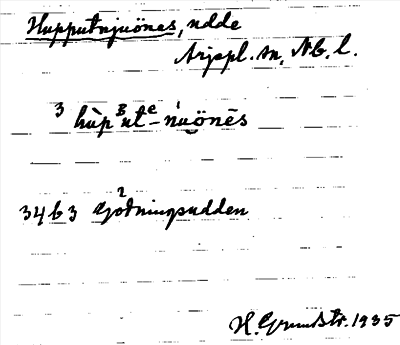 Hupputnjuönes, udde
Arjepl. sn, Nb. l.
3 hùpᴮutᵉ-ńuönēs
3463 Godningsudden
H. Grundstr. 1935